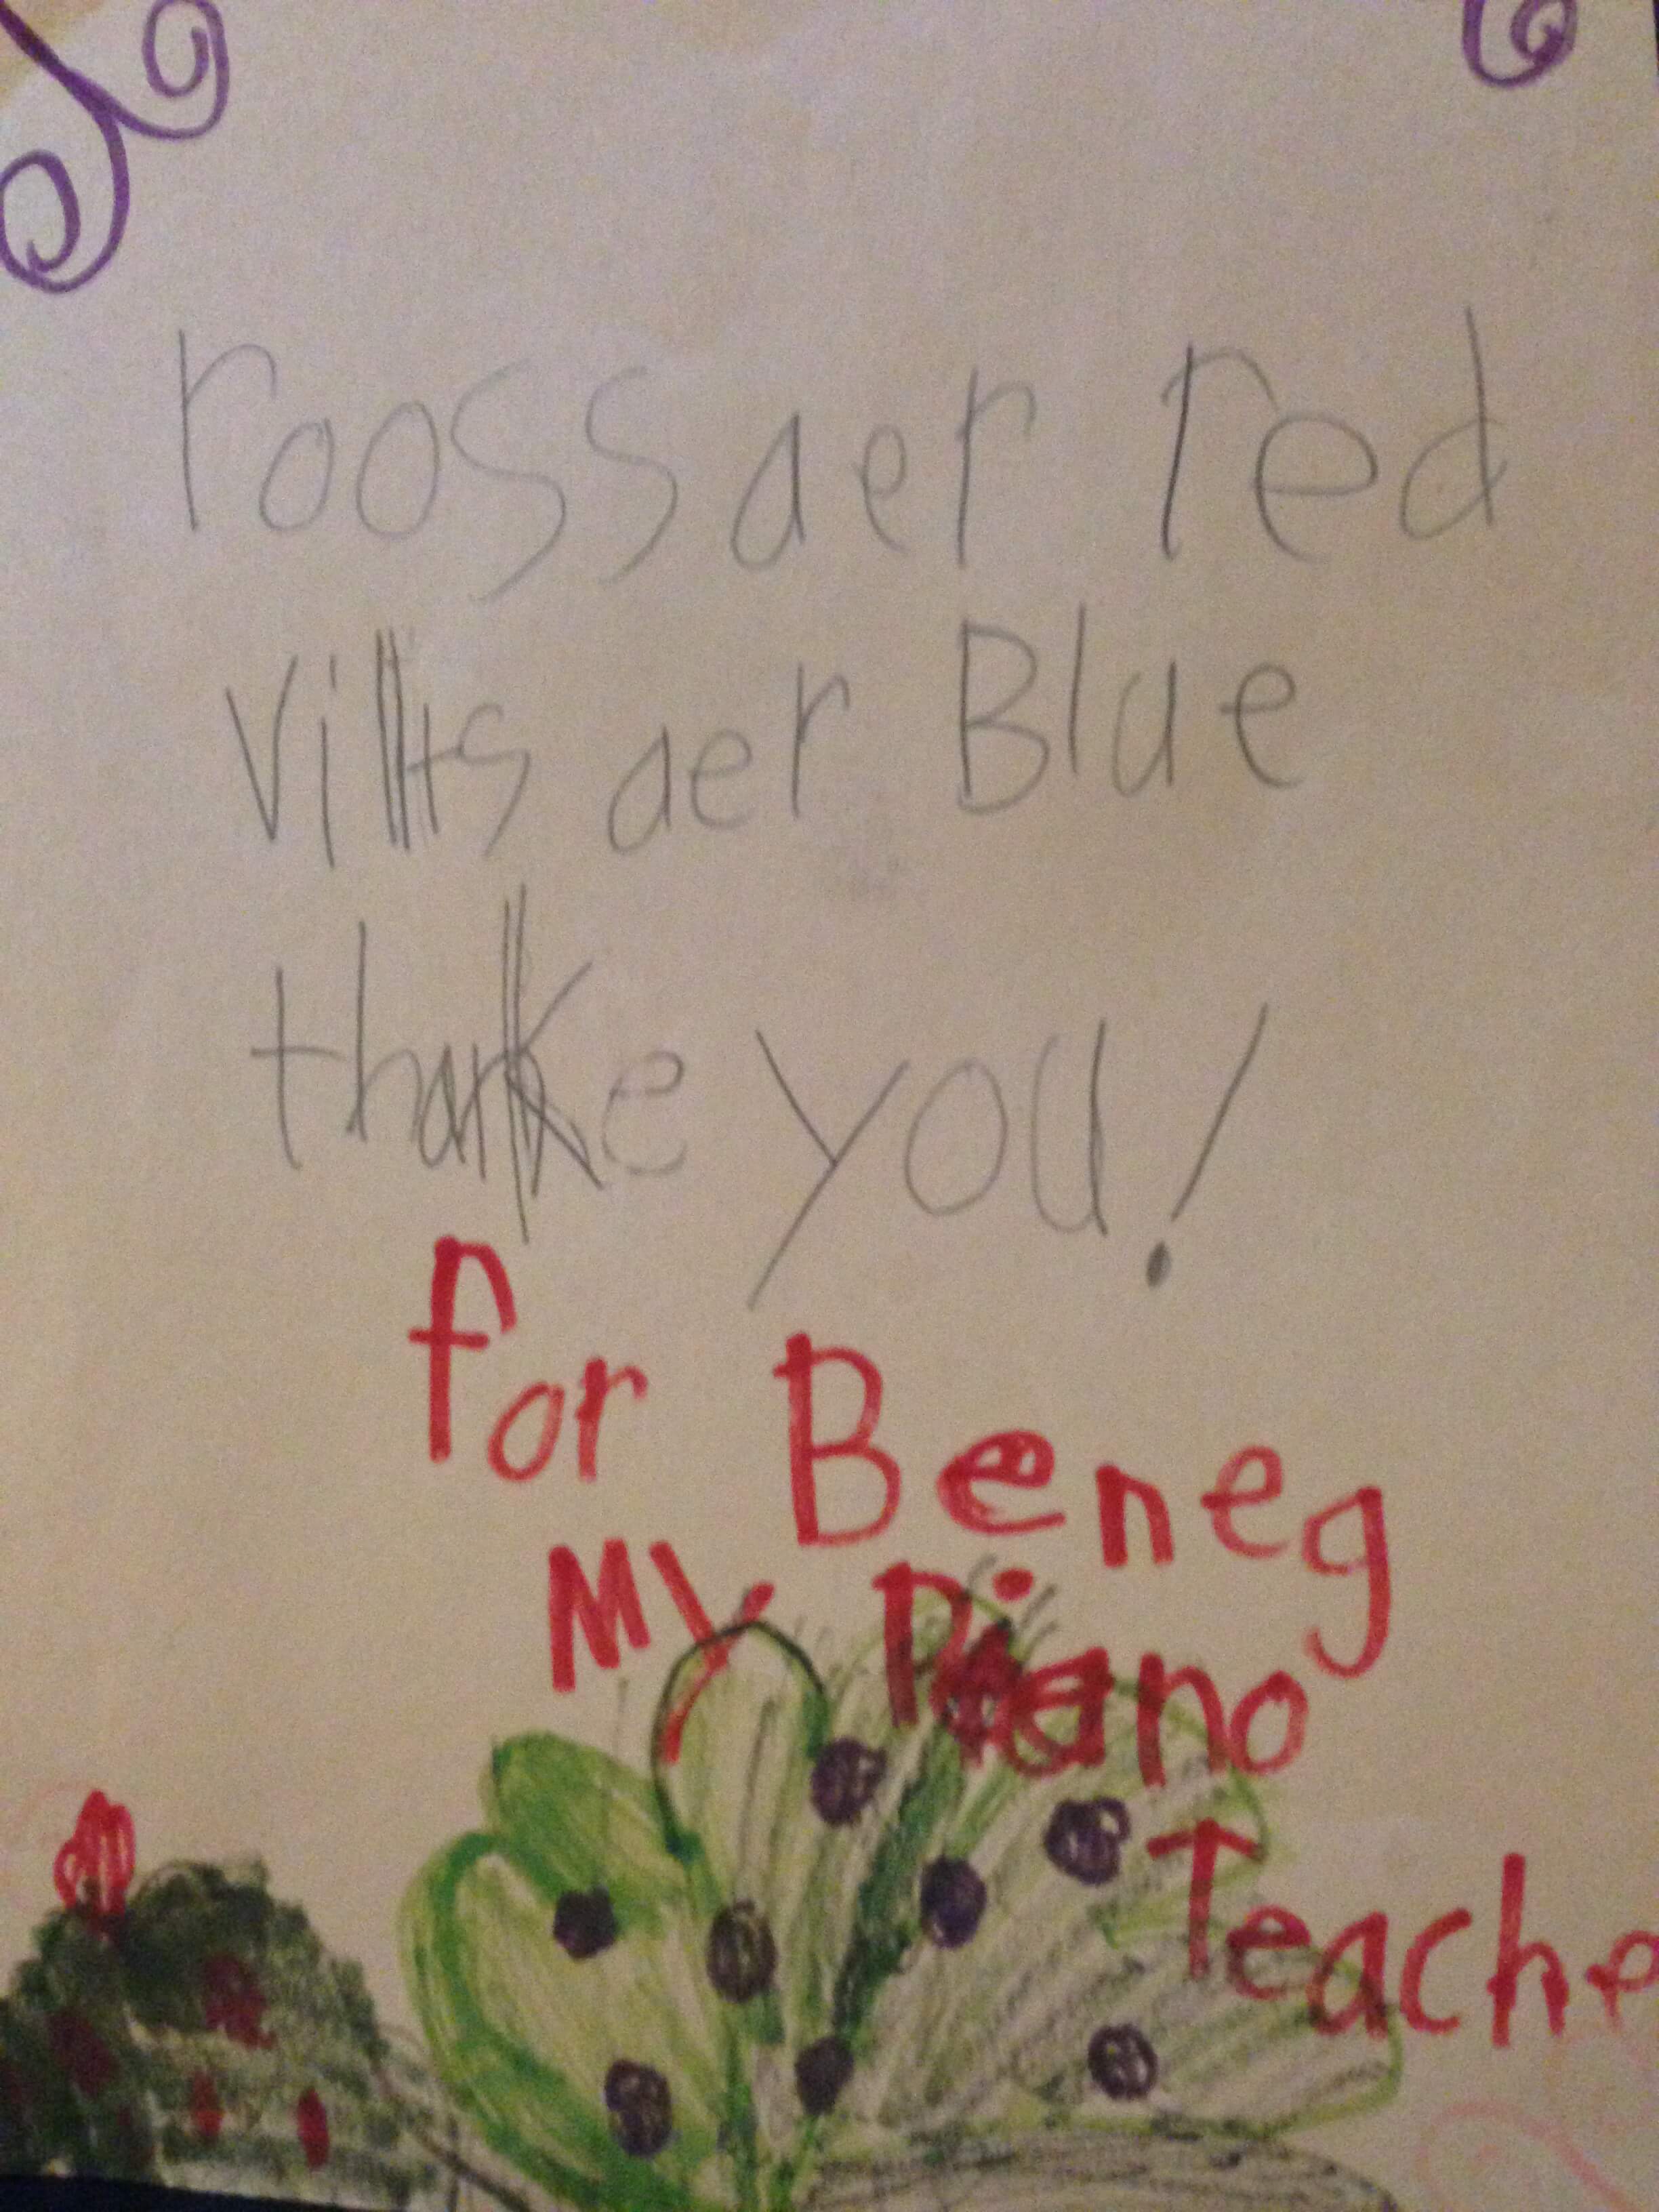 rooss aer red
villts aer Blue
thanke you!
for Beneg
My Piano
Teache